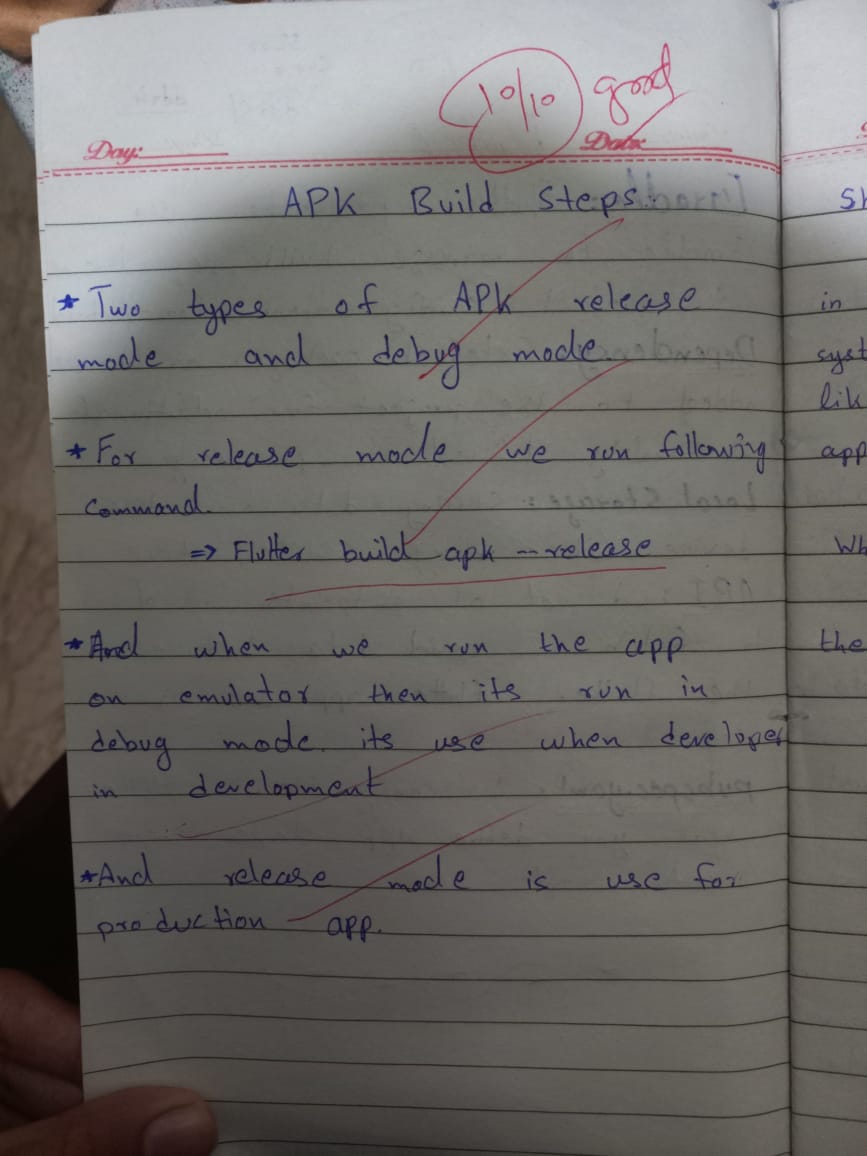 10/10 good
Day: Date:
APK Build Steps.
* Two types of APK release
mode and debug mode.
* For release mode we run following
Command.
⇒ Flutter build apk --release
* And when we run the app
on emulator then its run in
debug mode. its use when developer
in development
* And release mode is use for
production app.
Sh
in
syst
lik
app
Wh
the